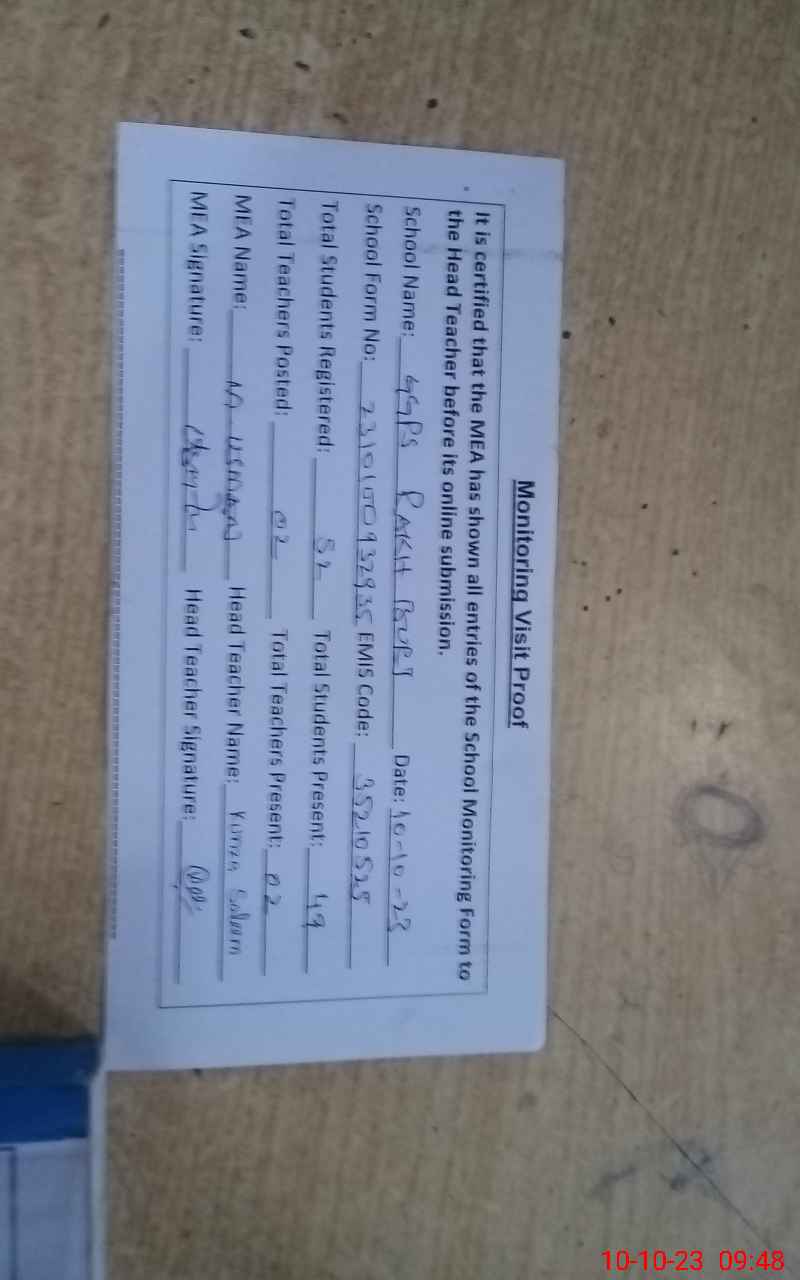 Monitoring Visit Proof
It is certified that the MEA has shown all entries of the School Monitoring Form to
the Head Teacher before its online submission.
School Name: GGPS RAKH Date: 10-10-23
School Form No: 23101100932935 EMIS Code: 35210525
Total Students Registered: 52 Total Students Present: 49
Total Teachers Posted: 02 Total Teachers Present: 02
MEA Name: M USMAN Head Teacher Name: Kinza Saleem
MEA Signature: Head Teacher Signature:
10-10-23 09:48